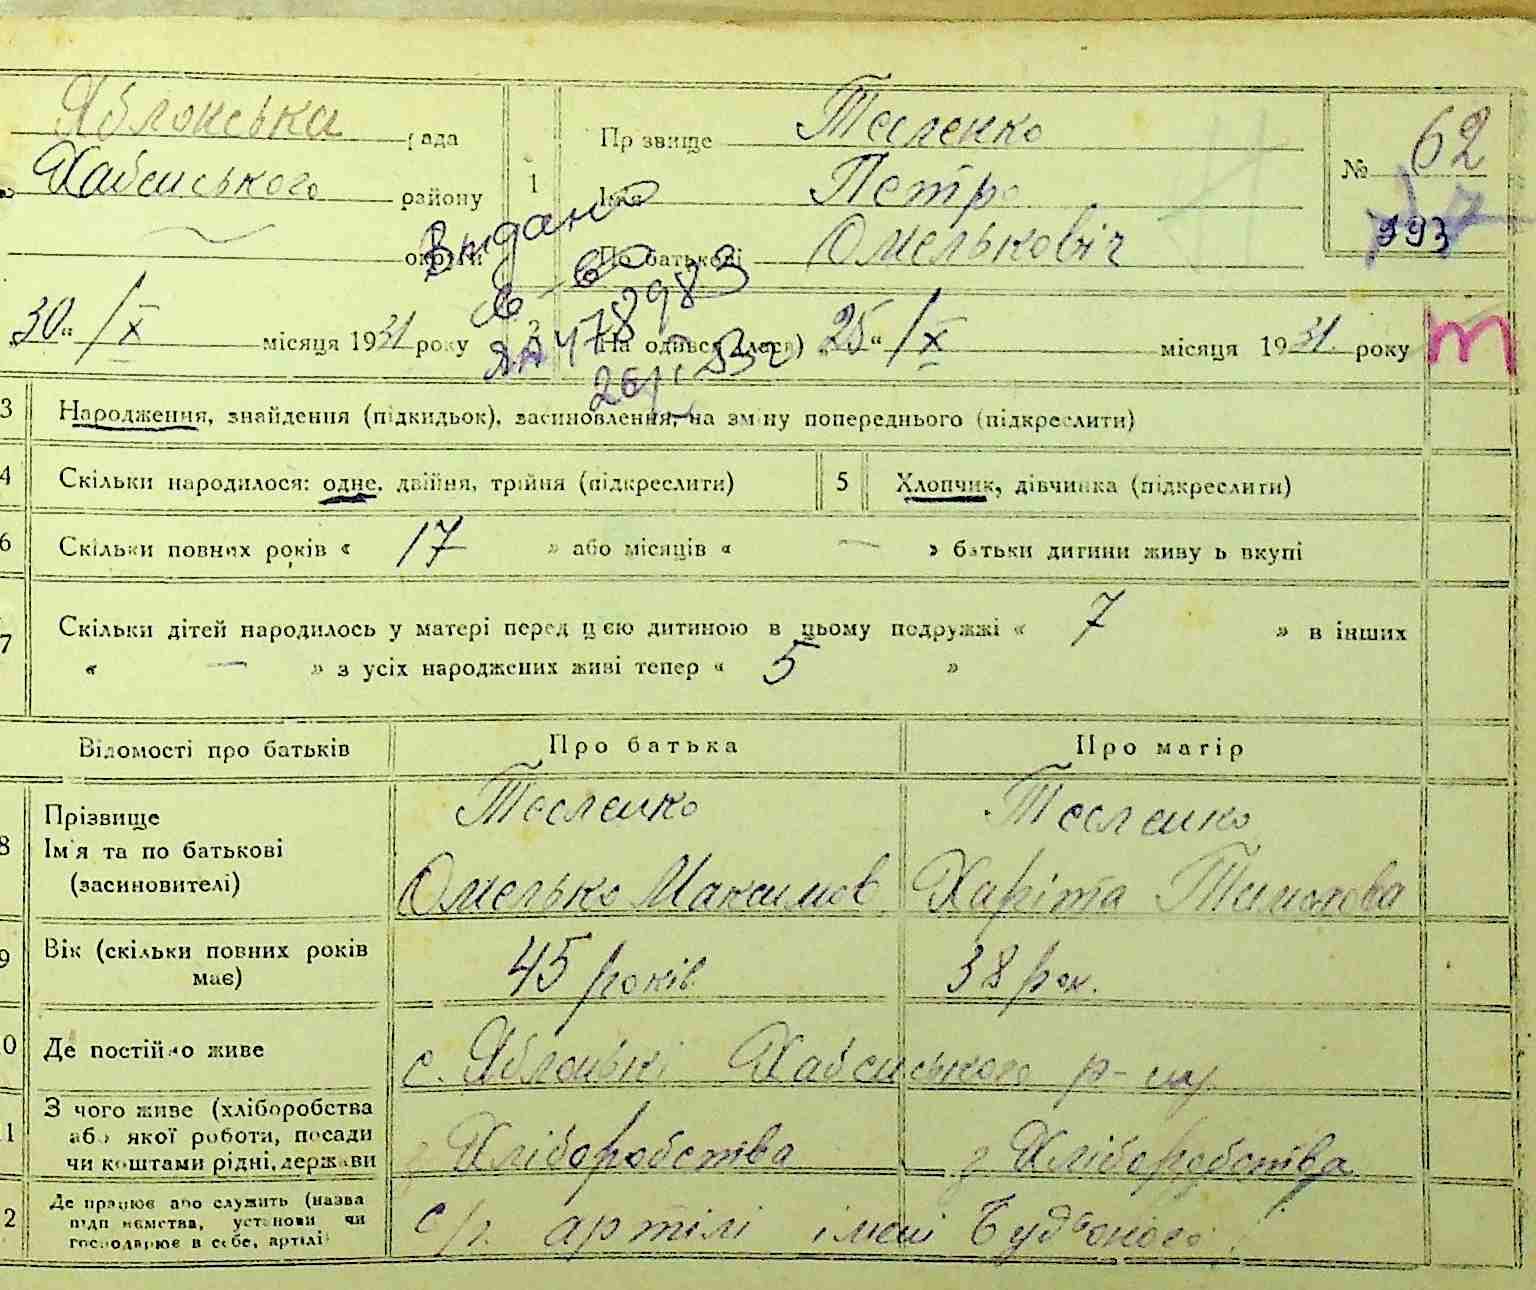 Яблонська рада
Хабенського району
округи
1 Прізвище Тесленко
Імя Петро
По батькові Омелькович
№ 62
993
Видано
„30“ /X місяця 1931 року
2 На одився (лася) „25“ /X місяця 1931 року
т
3 Народження, знайдення (підкидьок), засиновлення, на зміну попереднього (підкреслити)
4 Скільки народилося: одне, двійня, трійня (підкреслити)
5 Хлопчик, дівчинка (підкреслити)
6 Скільки повних років « 17 » або місяців « — » батьки дитини живуть вкупі
7 Скільки дітей народилось у матері перед цією дитиною в цьому подружжі « 7 » в інших
« — » з усіх народжених живі тепер « 5 »
Відомості про батьків Про батька Про матір
8 Прізвище Тесленко Тесленко
Ім'я та по батькові
(засиновителі) Омелько Максимов Харіта
9 Вік (скільки повних років
має) 45 років 38 рок.
10 Де постійно живе с. Яблоньки Хабенського р-ну
11 З чого живе (хліборобства
або якої роботи, посади
чи коштами рідні, держави з Хліборобства з Хліборобства
12 Де працює або служить (назва
підприємства, установи чи
господарює в себе, артілі) с/г. артілі імені Будьоного